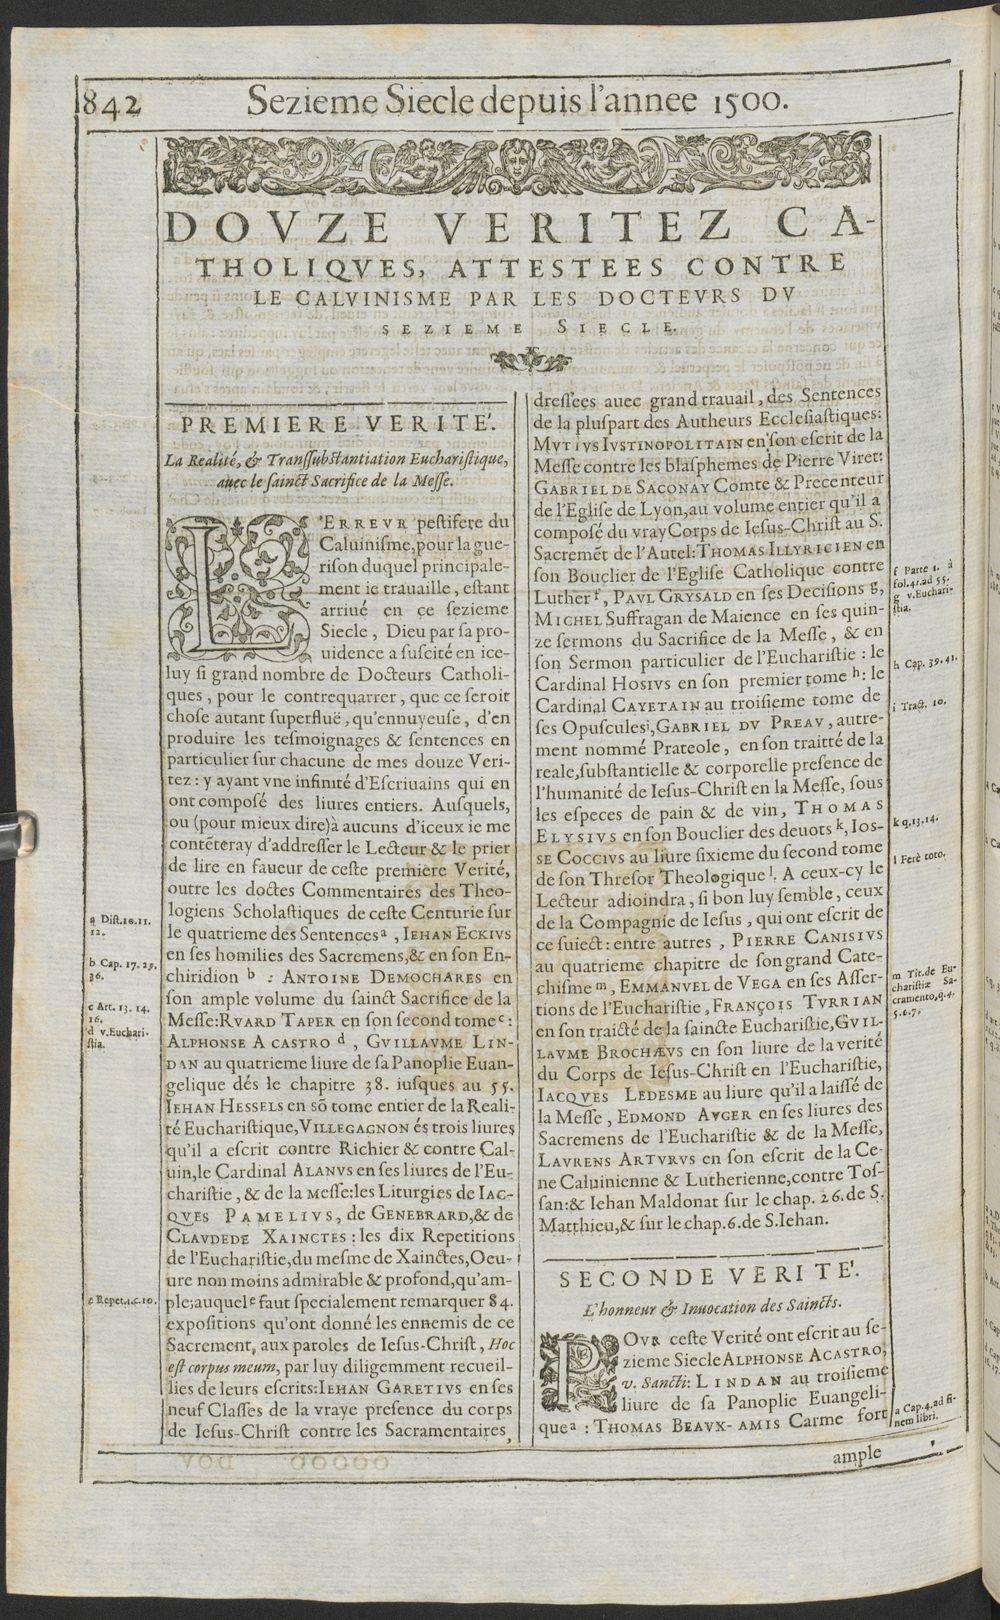 842 Sezieme Siecle depuis l'annee 1500.
DOVZE VERITEZ CA-
THOLIQVES, ATTESTEES CONTRE
LE CALVINISME PAR LES DOCTEVRS DV
SEZIEME SIECLE.
PREMIERE VERITE'.
La Realité, & Transſubſtantiation Euchariſtique,
auec le ſainct Sacrifice de la Meſſe.
L'ERREVR peſtifere du
Caluiniſme, pour la gue-
riſon duquel principale-
ment ie trauaille, eſtant
arriué en ce ſezieme
Siecle, Dieu par ſa pro-
uidence a ſuſcité en ice-
luy ſi grand nombre de Docteurs Catholi-
ques, pour le contrequarrer, que ce ſeroit
choſe autant ſuperfluë, qu'ennuyeuſe, d'en
produire les teſmoignages & ſentences en
particulier ſur chacune de mes douze Veri-
tez: y ayant vne infinité d'Eſcriuains qui en
ont compoſé des liures entiers. Auſquels,
ou (pour mieux dire) à aucuns d'iceux ie me
contẽteray d'addreſſer le Lecteur & le prier
de lire en faueur de ceſte premiere Verité,
outre les doctes Commentaires des Theo-
logiens Scholaſtiques de ceſte Centurie ſur
le quatrieme des Sentences a, IEHAN ECKIVS
en ſes homilies des Sacremens, & en ſon En-
chiridion b : ANTOINE DEMOCHARES en
ſon ample volume du ſainct Sacrifice de la
Meſſe: RVARD TAPER en ſon ſecond tome c:
ALPHONSE A CASTRO d, GVILLAVME LIN-
DAN au quatrieme liure de ſa Panoplie Euan-
gelique dés le chapitre 38. iuſques au 55.
IEHAN HESSELS en sõ tome entier de la Reali-
té Euchariſtique, VILLEGAGNON és trois liures
qu'il a eſcrit contre Richier & contre Cal-
uin, le Cardinal ALANVS en ſes liures de l'Eu-
chariſtie, & de la Meſſe: les Liturgies de IAC-
QVES PAMELIVS, de GENEBRARD, & de
CLAVDE DE XAINCTES: les dix Repetitions
de l'Euchariſtie, du meſme de Xainctes, Oeu-
ure non moins admirable & profond, qu'am-
ple; auquel e faut ſpecialement remarquer 84.
expoſitions qu'ont donné les ennemis de ce
Sacrement, aux paroles de Ieſus-Chriſt, Hoc
eſt corpus meum, par luy diligemment recueil-
lies de leurs eſcrits: IEHAN GARETIVS en ſes
neuf Claſſes de la vraye preſence du corps
de Ieſus-Chriſt contre les Sacramentaires,
a Diſt. 10. 11.
12.
b Cap. 17. 29.
36.
c Art. 13. 14.
16.
d v. Euchari-
ſtia.
e Repet. 1. c. 10.
dreſſees auec grand trauail, des Sentences
de la pluſpart des Autheurs Eccleſiaſtiques:
MVTIVS IVSTINOPOLITAIN en ſon eſcrit de la
Meſſe contre les blaſphemes de Pierre Viret:
GABRIEL DE SACONAY Comte & Precenteur
de l'Egliſe de Lyon, au volume entier qu'il a
compoſé du vray Corps de Ieſus-Chriſt au S.
Sacremẽt de l'Autel: THOMAS ILLYRICIEN en
ſon Bouclier de l'Egliſe Catholique contre
Luther f, PAVL GRYSALD en ſes Deciſions g,
MICHEL Suffragan de Maience en ſes quin-
ze ſermons du Sacrifice de la Meſſe, & en
ſon Sermon particulier de l'Euchariſtie : le
Cardinal HOSIVS en ſon premier tome h: le
Cardinal CAYETAIN au troiſieme tome de
ſes Opuſcules i, GABRIEL DV PREAV, autre-
ment nommé Prateole, en ſon traitté de la
reale, ſubſtantielle & corporelle preſence de
l'humanité de Ieſus-Chriſt en la Meſſe, ſous
les eſpeces de pain & de vin, THOMAS
ELYSIVS en ſon Bouclier des deuots k, IOS-
SE COCCIVS au liure ſixieme du ſecond tome
de ſon Threſor Theologique l. A ceux-cy le
Lecteur adioindra, ſi bon luy ſemble, ceux
de la Compagnie de Ieſus, qui ont eſcrit de
ce ſuiect: entre autres, PIERRE CANISIVS
au quatrieme chapitre de ſon grand Cate-
chiſme m, EMMANVEL de VEGA en ſes Aſſer-
tions de l'Euchariſtie, FRANÇOIS TVRRIAN
en ſon traicté de la ſaincte Euchariſtie, GVIL-
LAVME BROCHÆVS en ſon liure de la verité
du Corps de Ieſus-Chriſt en l'Euchariſtie,
IACQVES LEDESME au liure qu'il a laiſſé de
la Meſſe, EDMOND AVGER en ſes liures des
Sacremens de l'Euchariſtie & de la Meſſe,
LAVRENS ARTVRVS en ſon eſcrit de la Ce-
ne Caluinienne & Lutherienne, contre Toſ-
ſan: & Iehan Maldonat ſur le chap. 26. de S.
Matthieu, & ſur le chap. 6. de S. Iehan.
f Parte 1. à
fol. 41. ad 55.
g v. Euchari-
ſtia.
h Cap. 39. 41.
i Tract. 10.
k q. 13. 14.
l Ferè toto.
m Tit. de Eu-
chariſtiæ Sa-
cramento, q. 4.
5. 6. 7.
SECONDE VERITE'.
L'honneur & Inuocation des Saincts.
POVR ceſte Verité ont eſcrit au ſe-
zieme Siecle ALPHONSE A CASTRO,
v. Sancti: LINDAN au troiſieme
liure de ſa Panoplie Euangeli-
que a : THOMAS BEAVX-AMIS Carme fort
a Cap. 4. ad fi-
nem libri.
ample